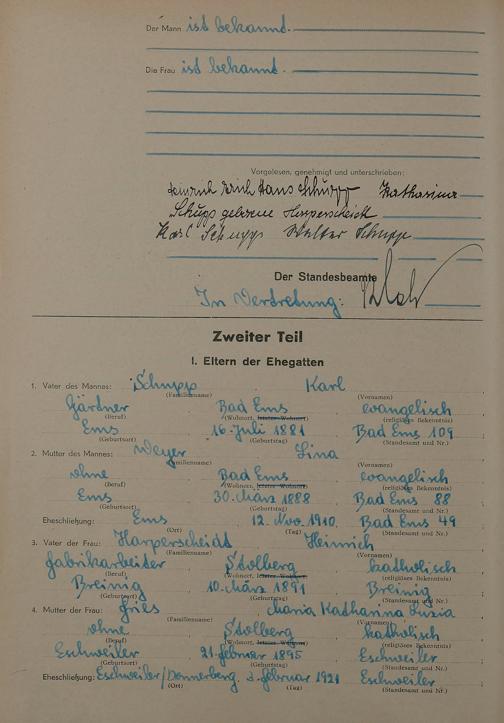 Der Mann ist bekannt.
Die Frau ist bekannt.
Vorgelesen, genehmigt und unterschrieben:
Heinrich Erich Hans Schupp Katharina
Schupp geborene Harperscheidt
Karl Schupp Walter Schupp
Der Standesbeamte
In Vertretung:
Zweiter Teil
I. Eltern der Ehegatten
1. Vater des Mannes: Schupp Karl
(Familienname) (Vornamen)
Gärtner Bad Ems evangelisch
(Beruf) (Wohnort, letzter Wohnort) (religiöses Bekenntnis)
Ems 16. Juli 1881 Bad Ems 109
(Geburtsort) (Geburtstag) (Standesamt und Nr.)
2. Mutter des Mannes: Weyer Lina
(Familienname) (Vornamen)
ohne Bad Ems evangelisch
(Beruf) (Wohnort, letzter Wohnort) (religiöses Bekenntnis)
Ems 30. März 1888 Bad Ems 88
(Geburtsort) (Geburtstag) (Standesamt und Nr.)
Eheschließung: Ems 12. Nov. 1910. Bad Ems 49
(Ort) (Tag) (Standesamt und Nr.)
3. Vater der Frau: Harperscheidt Heinrich
(Familienname) (Vornamen)
Fabrikarbeiter Stolberg katholisch
(Beruf) (Wohnort, letzter Wohnort) (religiöses Bekenntnis)
Breinig 10. März 1891 Breinig
(Geburtsort) (Geburtstag) (Standesamt und Nr.)
4. Mutter der Frau: Fries Maria Katharina Luzia
(Familienname) (Vornamen)
ohne Stolberg katholisch
(Beruf) (Wohnort, letzter Wohnort) (religiöses Bekenntnis)
Eschweiler 21. Februar 1895 Eschweiler
(Geburtsort) (Geburtstag) (Standesamt und Nr.)
Eheschließung: Eschweiler/Donnerberg, 3. Februar 1921 Eschweiler
(Ort) (Tag) (Standesamt und Nr.)